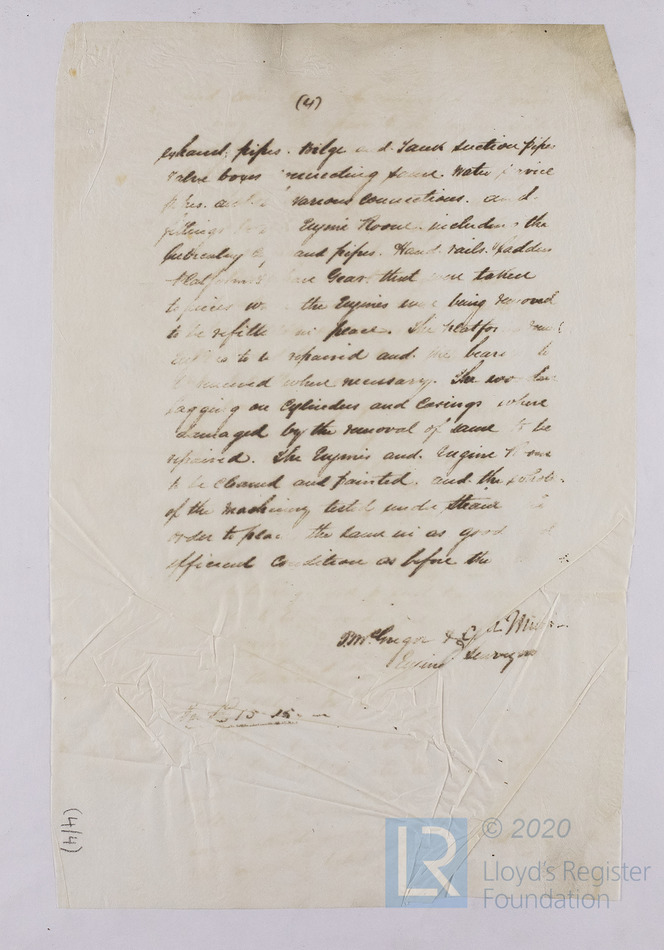 (4)
exhaust pipes. Bilge and Tank suction pipe
valve boxes connecting same Water service
pipes and various connections. and
fittings Engine Room including the
lubricating and pipes. Hand rails. Ladders
Platforms Gear that were taken
to pieces the Engines were being removed
to be refitted in place. The platform
to be repaired and the bearers to
be renewed where necessary. The wooden
lagging on Cylinders and Casings where
damaged by the removal of same to be
repaired. The Engines and Engine Room
to be cleaned and painted. and the whole
of the machinery tested under Steam in
order to place the same in as good
efficient Condition as before the
J. McGregor &
Engine Surveyor
Fee £ 15-15-
(4/4)
LR
© 2020
Lloyd's Register
Foundation